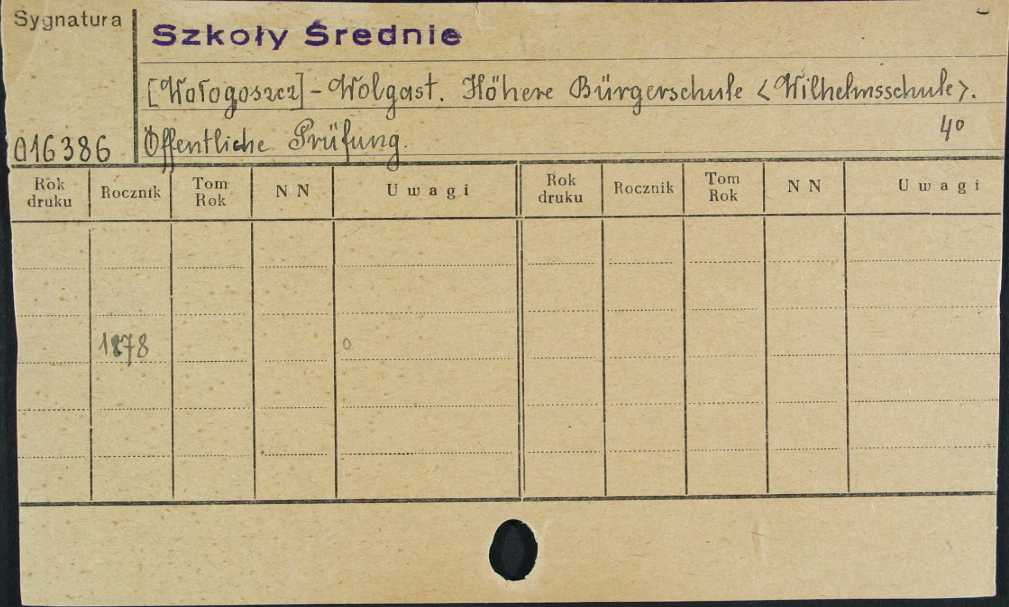 Sygnatura
Szkoły Średnie
[Wołogoszcz] - Wolgast. Höhere Bürgerschule <Wilhelmsschule>.
016386 Öffentliche Prüfung. 4°
Rok druku Rocznik Tom Rok NN Uwagi Rok druku Rocznik Tom Rok NN Uwagi
1878 0